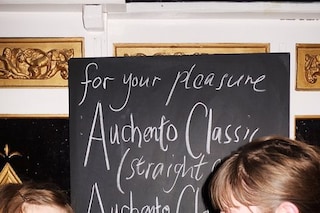 for your pleasure
Auchento Classic
(straight
Auchento